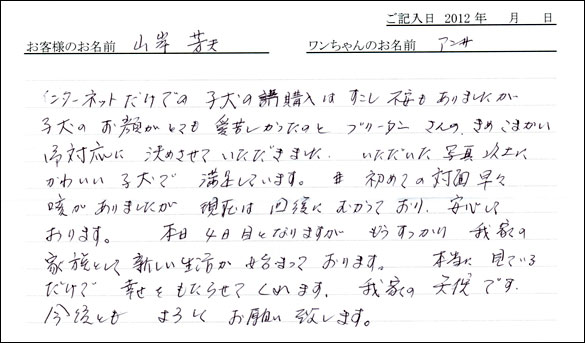 ご記入日 2012 年 月 日
お客様のお名前 山岸 芳夫 ワンちゃんのお名前 アンナ
インターネットだけでの 子犬の 購入は すこし 不安も ありましたが
子犬の お顔がとても 愛苦しかったのと ブリーダー さんの きめこまかい
御対応に 決めさせて いただきました. いただいた 写真以上に
かわいい 子犬で 満足しています。 初めての 対面 早々
咳が ありましたが 現在は 回復に むかって おり、安心して
おります。 本日 4日目と なりますが もうすっかり 我家の
家族として 新しい 生活が 始まって おります。 本当に 見ている
だけで 幸せを もたらせて くれます. 我家の 天使 です.
今後とも よろしく お願い 致します。